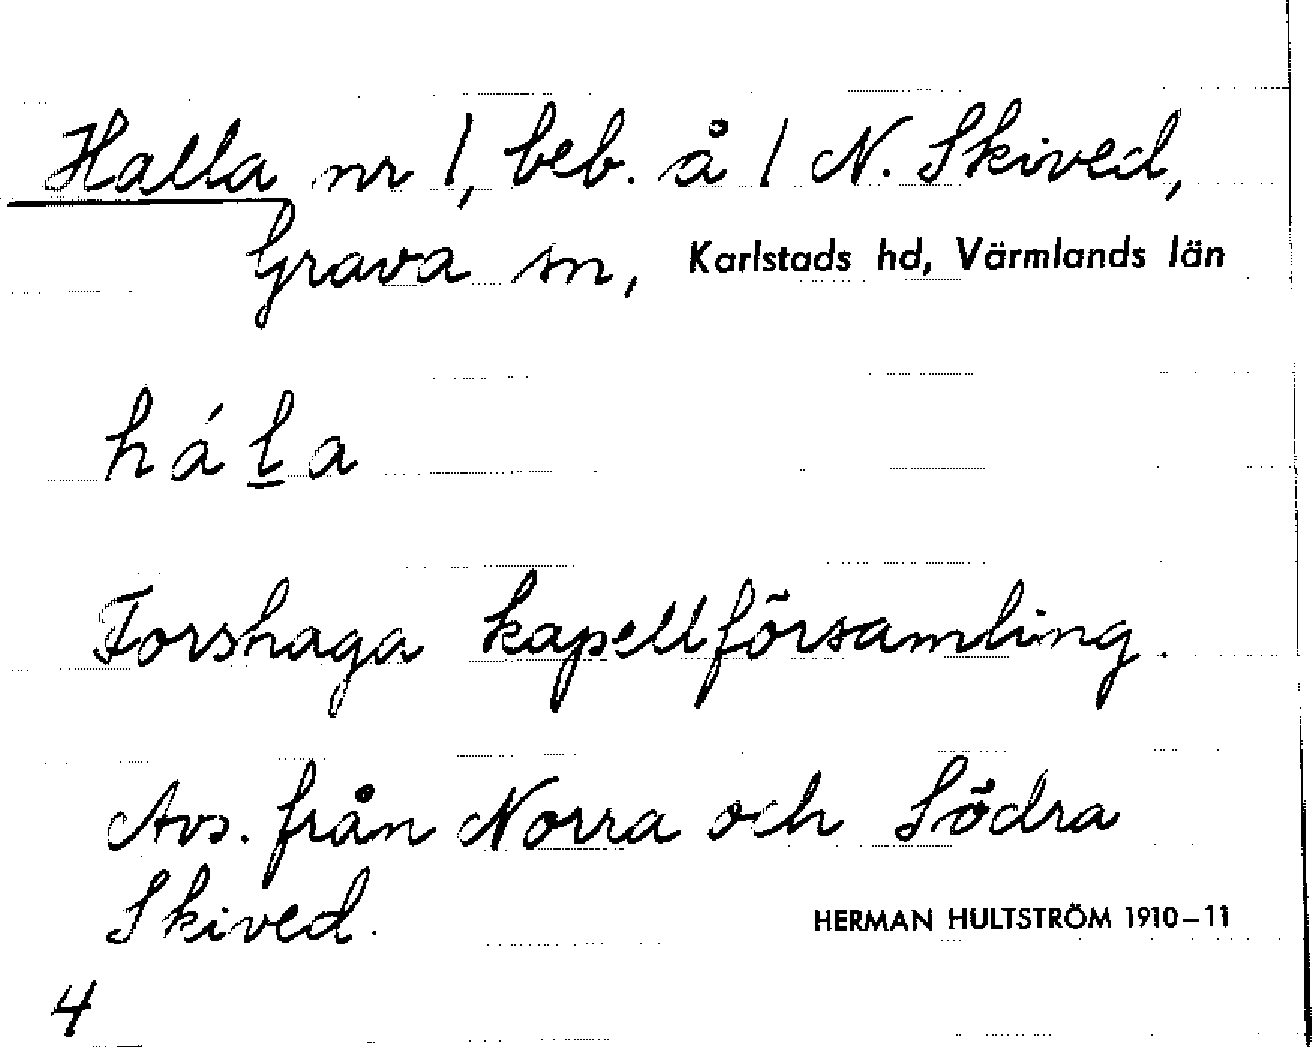 Halla nr 1, beb. å 1 N. Skived,
Grava sn, Karlstads hd, Värmlands län
hál̲a
Forshaga kapellförsamling.
Avs. från Norra och Södra
Skived.
HERMAN HULTSTRÖM 1910–11
4